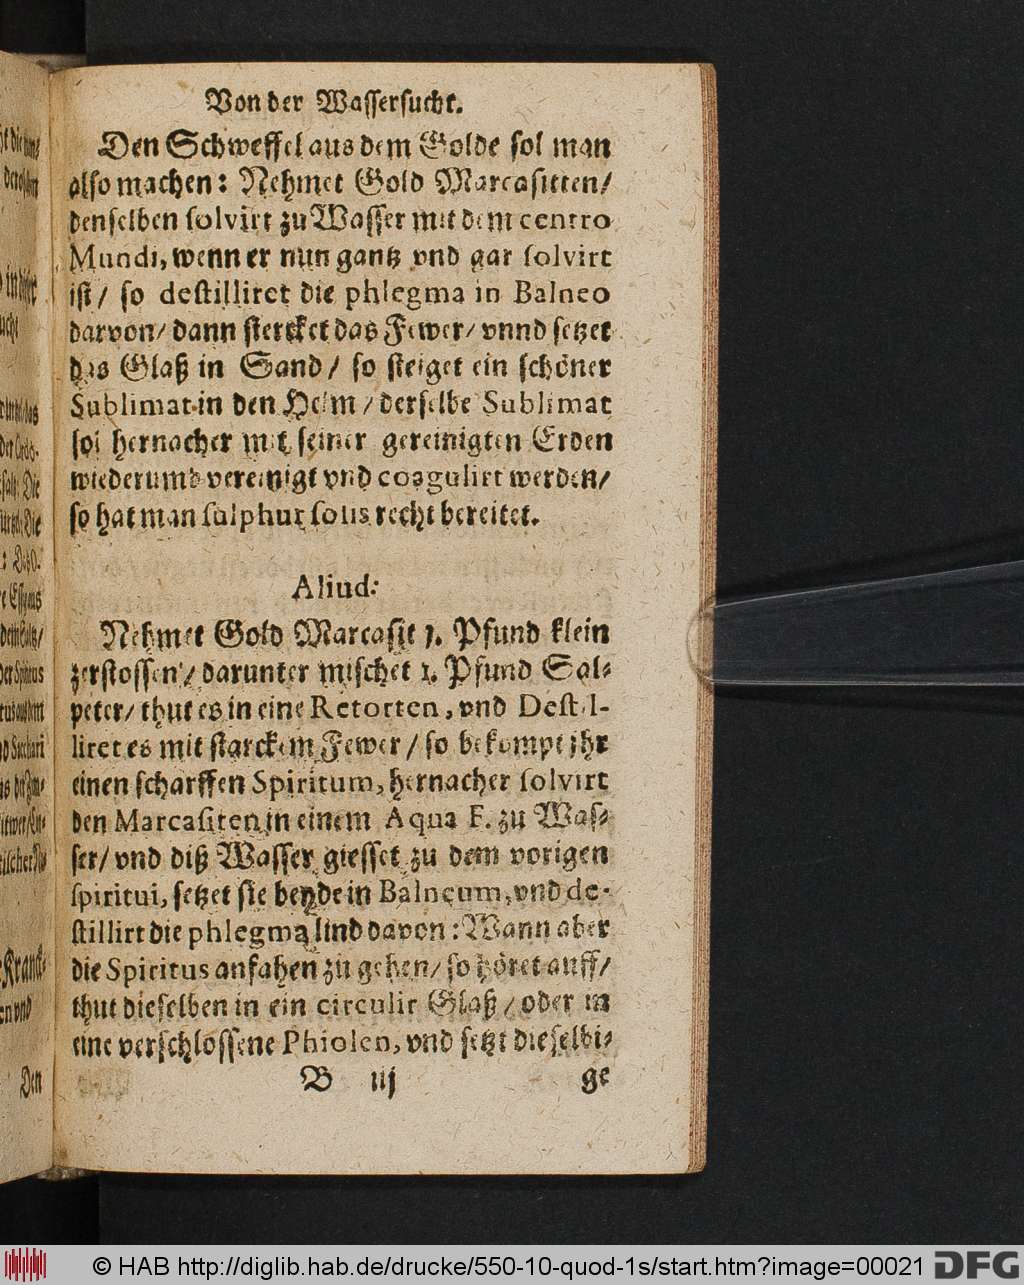 Von der Wassersucht.
Den Schweffel aus dem Golde sol man
also machen: Nehmet Gold Marcasitten/
denselben solvirt zu Wasser mit dem centro
Mundi, wenn er nun gantz vnd gar solvirt
ist/ so destilliret die phlegma in Balneo
darvon/ dann stercket das Fewer/ vnnd setzet
das Glaß in Sand/ so steiget ein schöner
Sublimat in den Helm/ derselbe Sublimat
sol hernacher mit seiner gereinigten Erden
wiederumb vereinigt vnd coagulirt werden/
so hat man sulphur solis recht bereitet.
Aliud:
Nehmet Gold Marcasit 1. Pfund klein
zerstossen/ darunter mischet 1. Pfund Sal-
peter/ thut es in eine Retorten, vnd Destil-
liret es mit starckem Fewer/ so bekompt jhr
einen scharffen Spiritum, hernacher solvirt
den Marcasiten in einem Aqua F. zu Was-
ser/ vnd diß Wasser giesset zu dem vorigen
spiritui, setzet sie beyde in Balneum, vnd de-
stillirt die phlegma lind davon: Wann aber
die Spiritus anfahen zu gehen/ so höret auff/
thut dieselben in ein circulir Glaß/ oder in
eine verschlossene Phiolen, vnd setzt dieselbi-
B iij ge
Den
© HAB http://diglib.hab.de/drucke/550-10-quod-1s/start.htm?image=00021
DFG